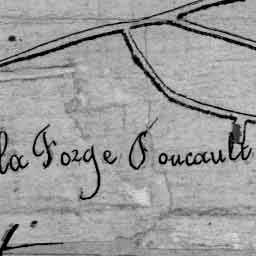 la Forge Foucault